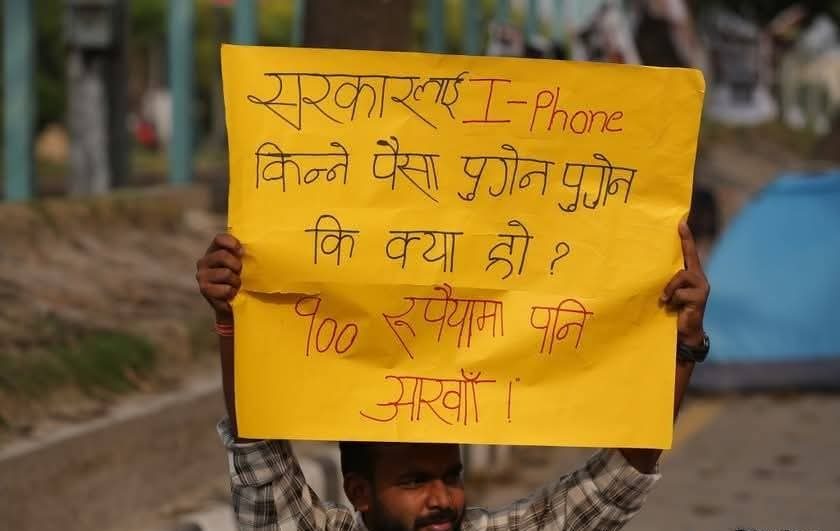 सरकारलाई I-Phone
किन्ने पैसा पुगेन पुगेन
कि क्या हो ?
१०० रूपैयामा पनि
आखाँ !